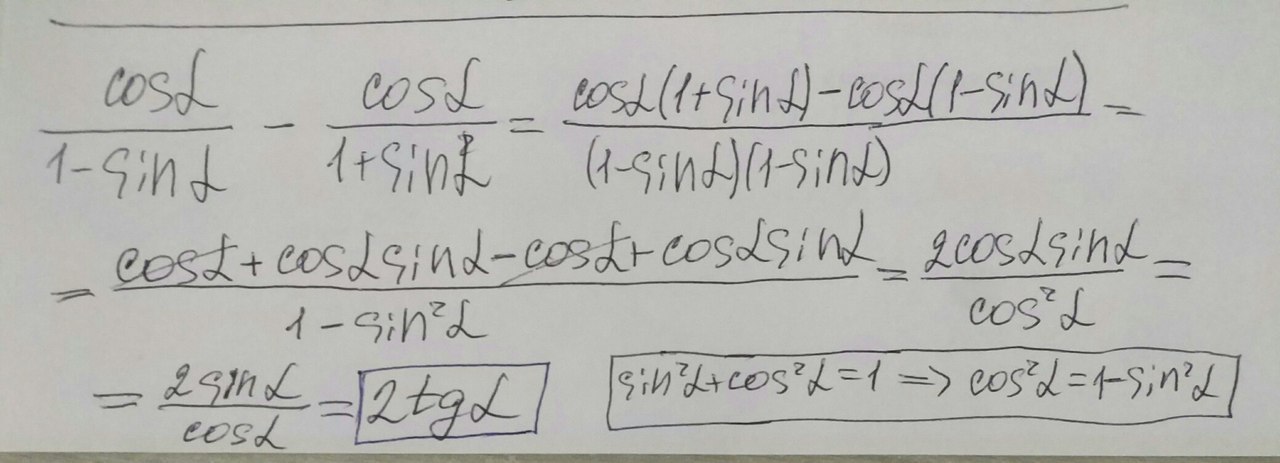 cosα/(1-sinα) - cosα/(1+sinα) = (cosα(1+sinα)-cosα(1-sinα))/((1-sinα)(1-sinα)) =
= (cosα+cosαsinα-cosα+cosαsinα)/(1-sin²α) = (2cosαsinα)/(cos²α) =
= (2sinα)/(cosα) = 2tgα sin²α+cos²α=1 => cos²α=1-sin²α